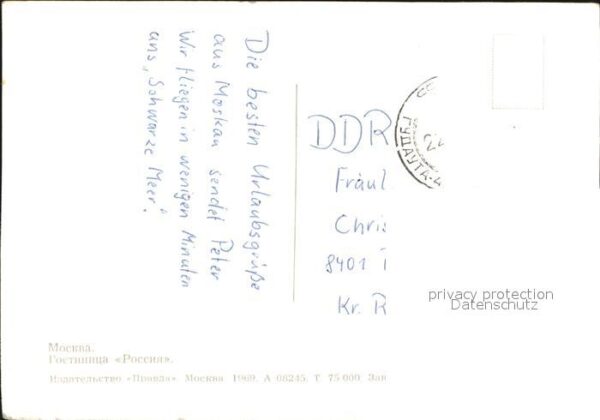 Die besten Urlaubsgrüße
aus Moskau sendet Peter
Wir fliegen in wenigen Minuten
ans „Schwarze Meer“.
DDR
Fräul
Chris
8401
Kr. R
ГУДАУТА-4
privacy protection
Datenschutz
Москва.
Гостиница «Россия».
Издательство «Правда». Москва 1969. А 08245. Т. 75 000 Зак